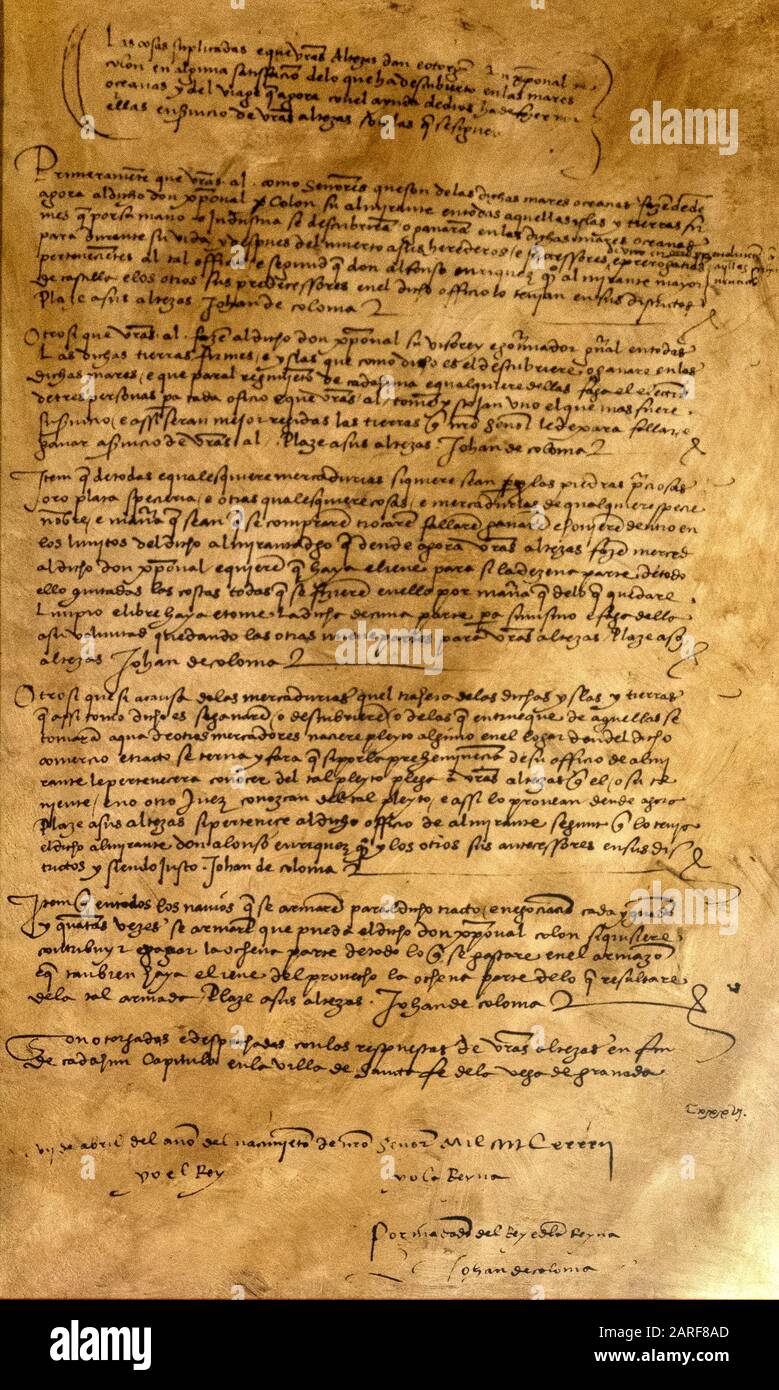 Las cosas suplicadas e que vras Altezas dan e otorgan a don xpoual de
colon en alguna satisfacion delo que ha descubierto en las mares
oceanas y del viage q agora con el ayuda de dios ha de fazer por
ellas en seruicio de vras altezas son las q se siguen
Primeramente que vras al. como Senores que son delas dichas mares oceanas fazen dende
agora al dicho don xpoual Colon su almirante en todas aquellas islas y tierras fir
mes q por su mano o Industria se descubriran o ganaran en las dichas mares oceanas
para durante su vida y despues del muerto a sus herederos e successores
pertenecientes al tal officio e segund q don alfonso enriquez almirante mayor
de castilla e los otros sus predecessores en el dicho officio lo tenian en sus districtos
Plaze a sus altezas Johan de coloma
Otrosi que vras al. fazen al dicho don xpoual su visorey e gouernador gnal en todas
Las dichas tierras firmes e yslas que como dicho es el descubriere o ganare en las
dichas mares e que paral regimiento de cada huna e qualquiere dellas faga el eleccion
de tres personas pa cada oficio e que vras al. tomen y scojan uno el que mas fuere
su seruicio e assi seran mejor regidas las tierras q nro senor le dexara fallar e
ganar a seruicio de vras al. Plaze a sus altezas Johan de coloma
Item q de todas e qualesquiere mercadurias siquiere sean perlas piedras preciosas
oro plata speciería e otras qualesquiere cosas e mercadurias de qualquiere specie
nombre e manera q sean q se compraren trocaren fallaren ganaren e houieren dentro en
los limites del dicho almirantadgo q dende agora vras altezas fazen merced
al dicho don xpoual e quieren q haya e lieue para si la dezena parte de todo
ello quitadas las costas todas q se fizieren en ello por manera q delo q quedare
Limpio e libre haya e tome La dicha decima parte pa si mismo e faga dello
a su voluntad quedando las otras nueue partes para vras altezas Plaze a sus
altezas Johan de coloma
Otrosi que si a causa delas mercadurias quel trahera delas dichas yslas y tierras
q assi como dicho es se ganaren o descubrieren o delas q en trueque de aquellas se
tomaran aqua de otros mercadores naciere pleyto alguno en el logar donde el dicho
comercio e tracto se terna y fara q si por la preheminencia de su officio de almi
rante le pertenecera conocer del tal pleyto plega a vras altezas q el o su te
niente e no otro Juez conozcan del tal pleyto e assi lo prouean dende agora
Plaze a sus altezas si pertenece al dicho officio de almirante segunt q lo tenia
el dicho almirante don alonso enriquez y los otros sus antecessores en sus dis
trictos y siendo Justo Johan de coloma
Item q en todos los nauios q se armaren paral dicho tracto e negociacion cada y quando
y quantas vezes se armaren que pueda el dicho don xpoual colon si quisiere
contribuyr e pagar la ochena parte de todo lo q se gastare en el armazon
e q tanbien haya e lieue del prouecho la ochena parte delo q resultare
dela tal armada Plaze a sus altezas Johan de coloma
Son otorgadas e despachadas con las respuestas de vras altezas en fin
de cada hun Capitulo en la villa de Santa fe dela vega de granada
Cxxxvj.
de abril del año del nacimiento de nro Senor Mil
yo el Rey yo la Reyna
Por mandado del Rey e dela Reyna
Johan de coloma
alamy
Image ID: 2ARF8AD
www.alamy.com